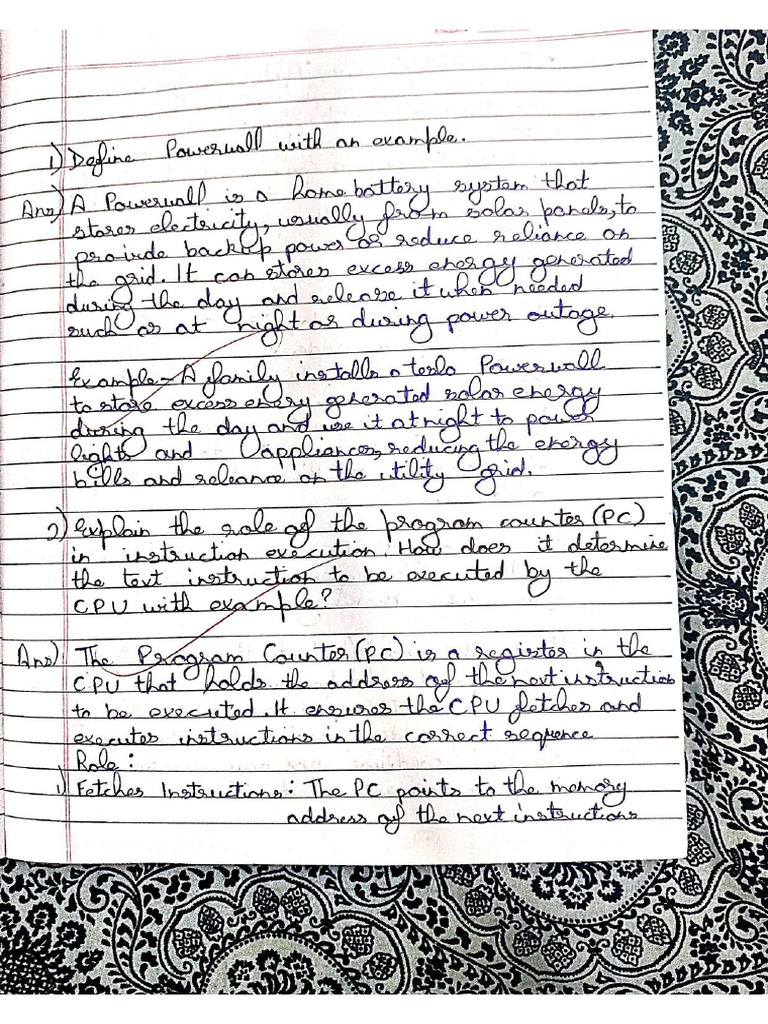 1) Define Powerwall with an example.
Ans) A Powerwall is a home battery system that
stores electricity, usually from solar panels, to
provide backup power or reduce reliance on
the grid. It can stores excess energy generated
during the day and release it when needed
such as at night or during power outage.
Example - A family installs a tesla Powerwall
to store excess enery generated solar energy
during the day and use it at night to power
lights and appliances, reducing the energy
bills and releance on the utility grid.
2) Explain the role of the program counter (PC)
in instruction execution. How does it determine
the text instruction to be executed by the
CPU with example?
Ans) The Program Counter (PC) is a register in the
CPU that holds the address of the next instruction
to be executed. It ensures the CPU fetches and
executes instructions in the correct sequence
Role:
1) Fetches Instructions: The PC points to the memory
address of the next instructions